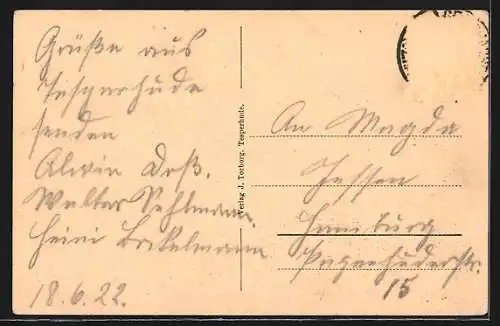 Grüße aus
Tesperhude
senden
Alwin Doß.
Walter Sehlmann.
Heini Brekelmann
18.6.22.
Verlag J. Torborg, Tesperhude.
An Magda
Jessen
Hamburg
15